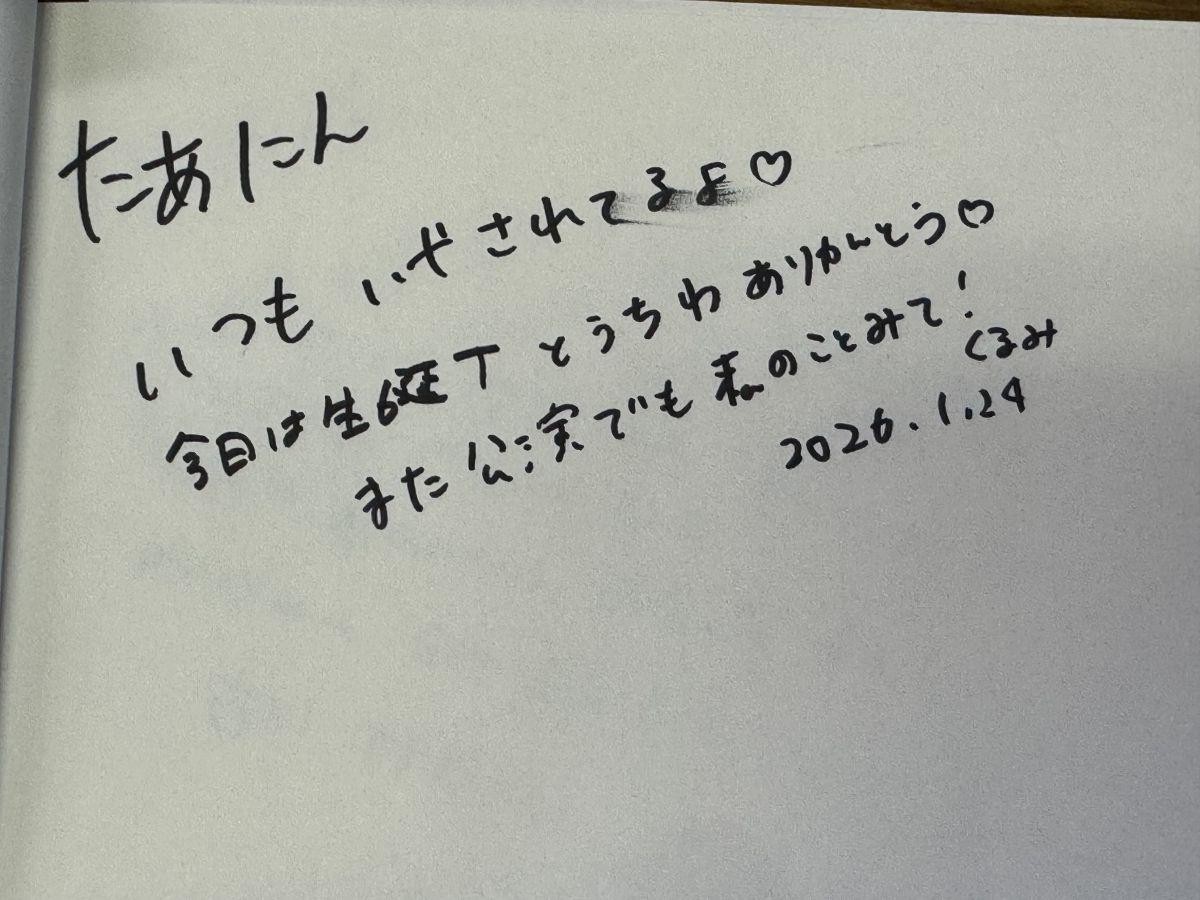 たあにん
いつも いやされてるよ♡
今日は生誕Tとうちわ ありがとう♡
また公演でも 私のことみて!
くるみ
2026.1.24